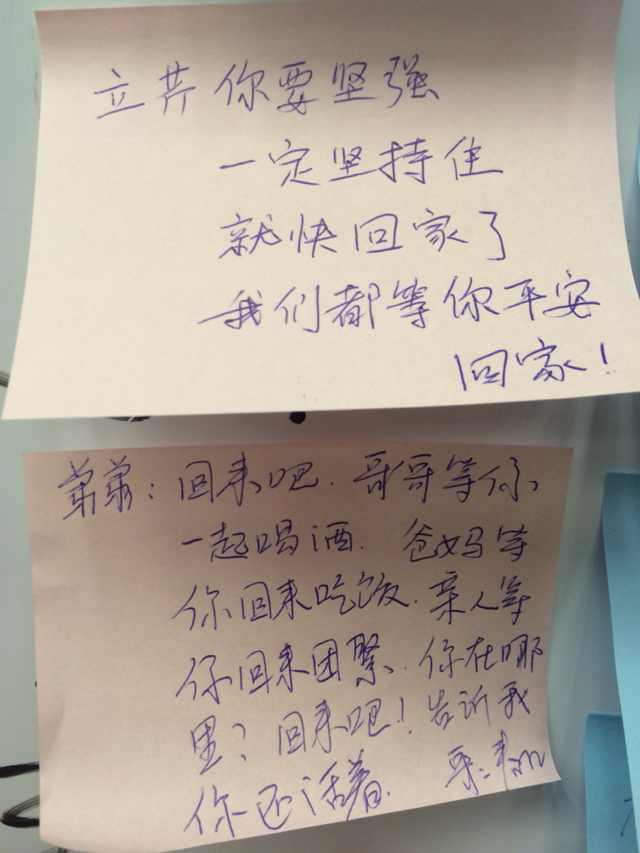 立芹你要坚强
一定坚持住
就快回家了
我们都等你平安
回家！
弟弟：回来吧．哥哥等你
一起喝酒．爸妈等
你回来吃饭．亲人等
你回来团聚．你在哪
里？回来吧！告诉我
你还活着．